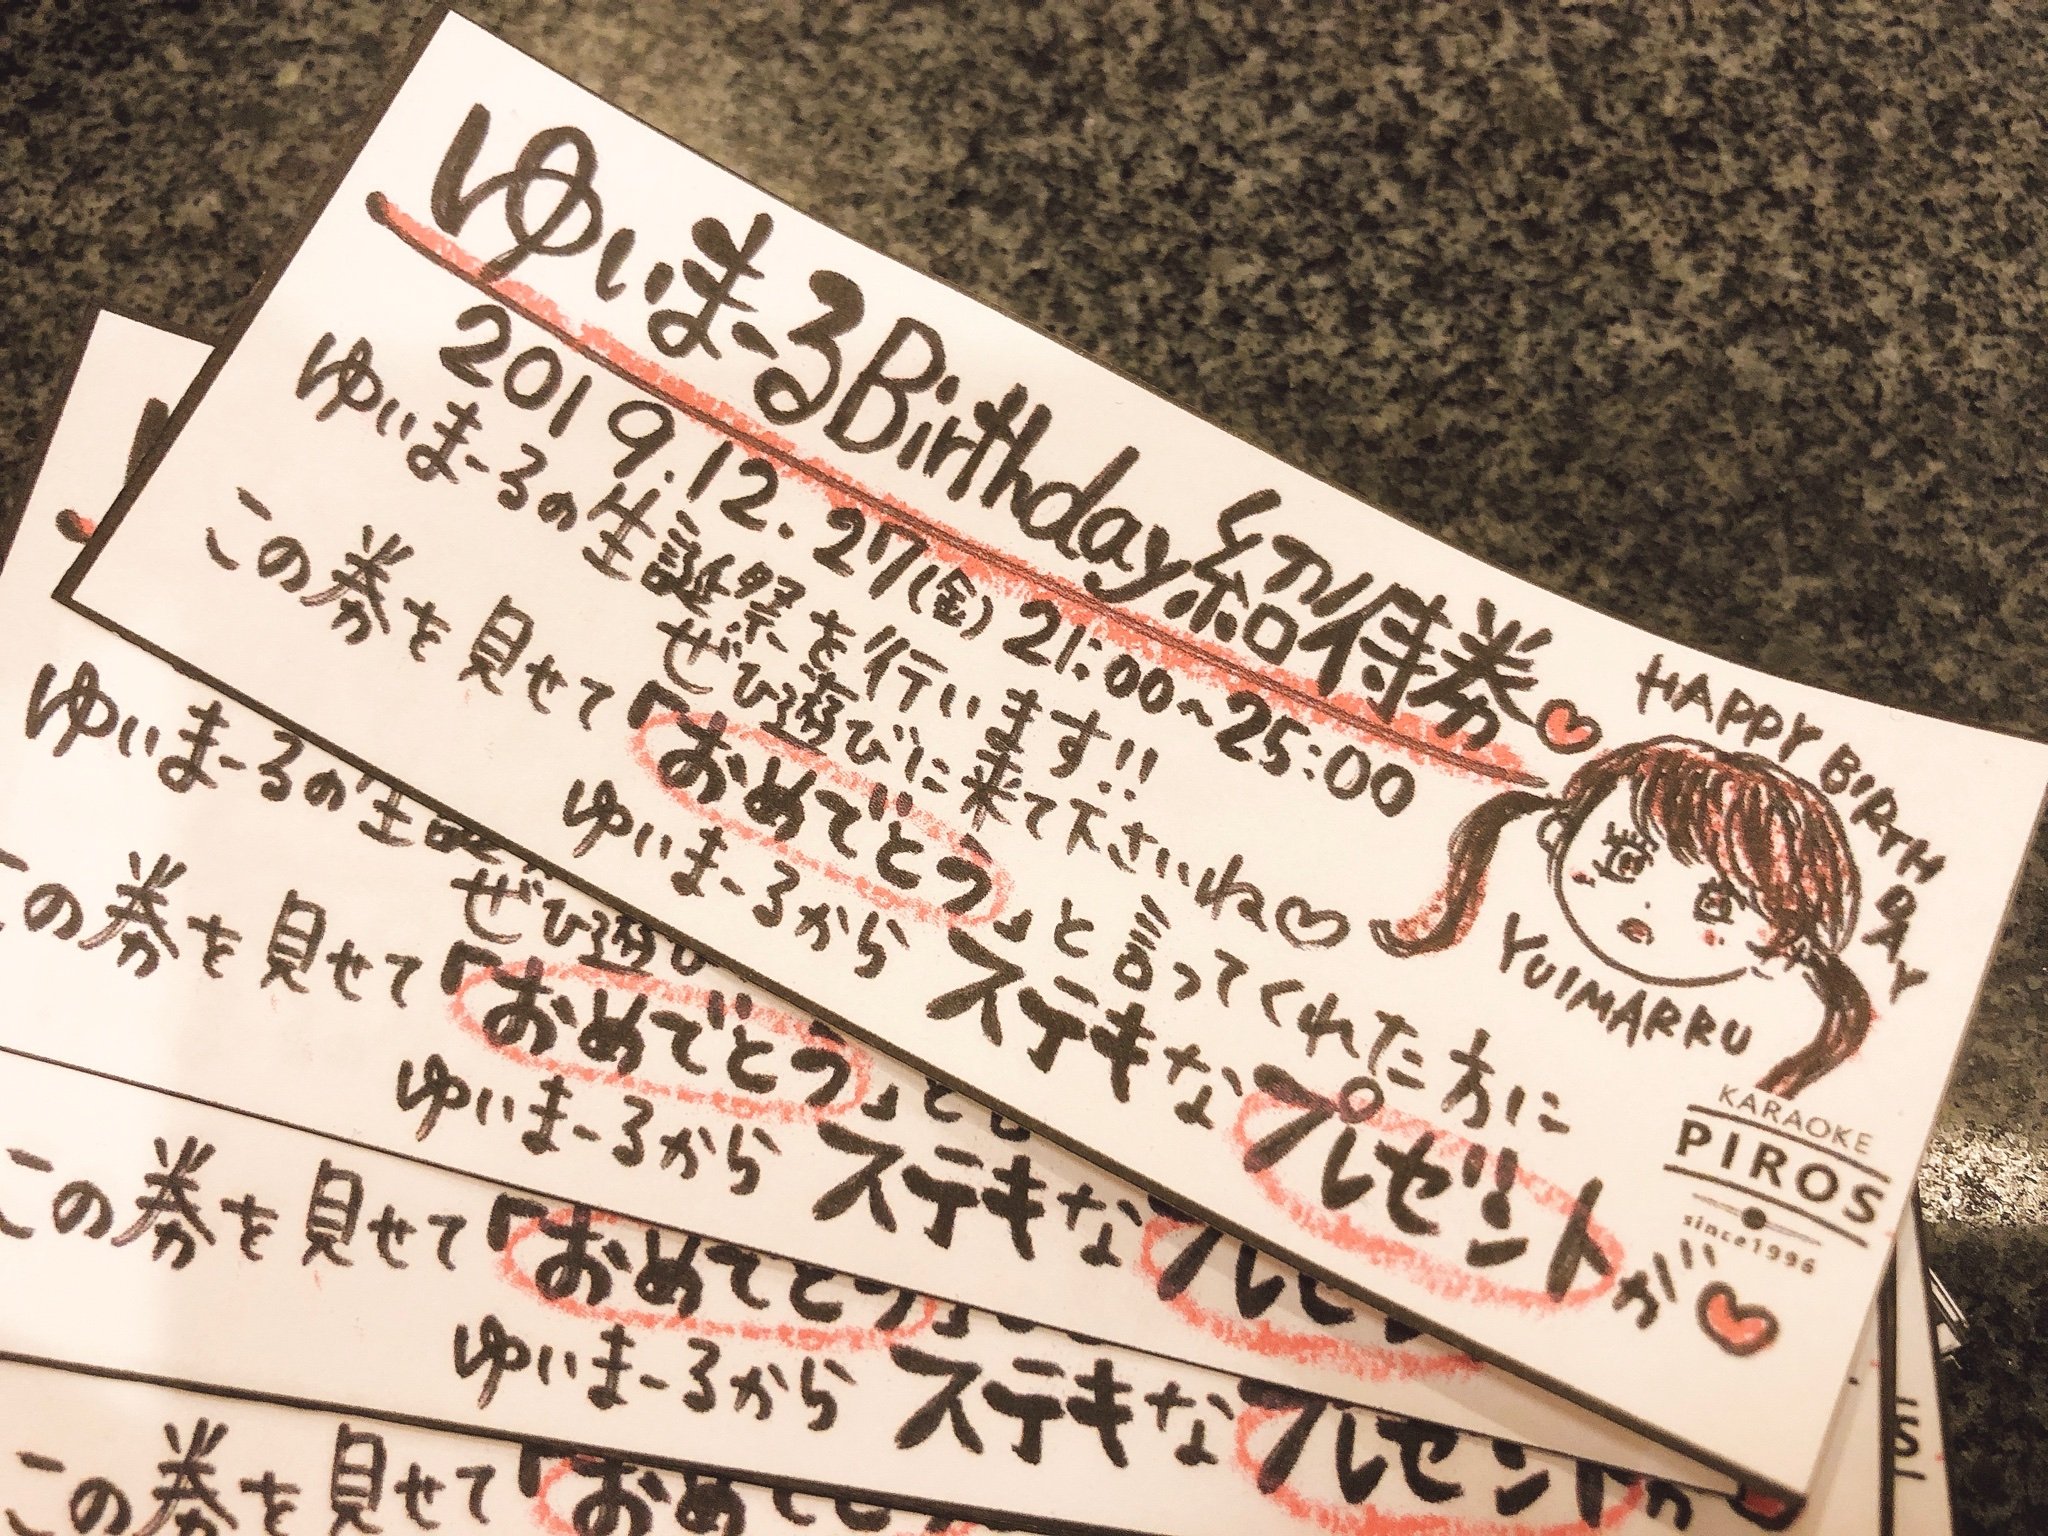 ゆいまーるBirthday紹待券
2019.12.27(金) 21:00~25:00
ゆいまーるの生誕祭を行います!!
ぜひ遊びに来て下さいね
この券を見せて「おめでとう」と言ってくれた方に
ゆいまーるからステキなプレゼントが
HAPPY BIRTHDAY
YUIMARRU
KARAOKE
PIROS
since1996
ゆいまーるの生誕
ぜひ遊び
この券を見せて「おめでとう」と
ゆいまーるからステキなプレゼ
この券を見せて「おめでとう」
ゆいまーるからステキなプレゼントが
この券を見せて「おめでと
S